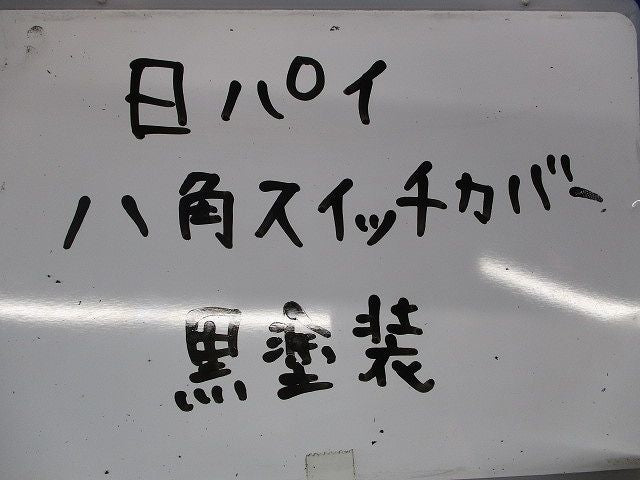 日パイ
八角スイッチカバー
黒塗装